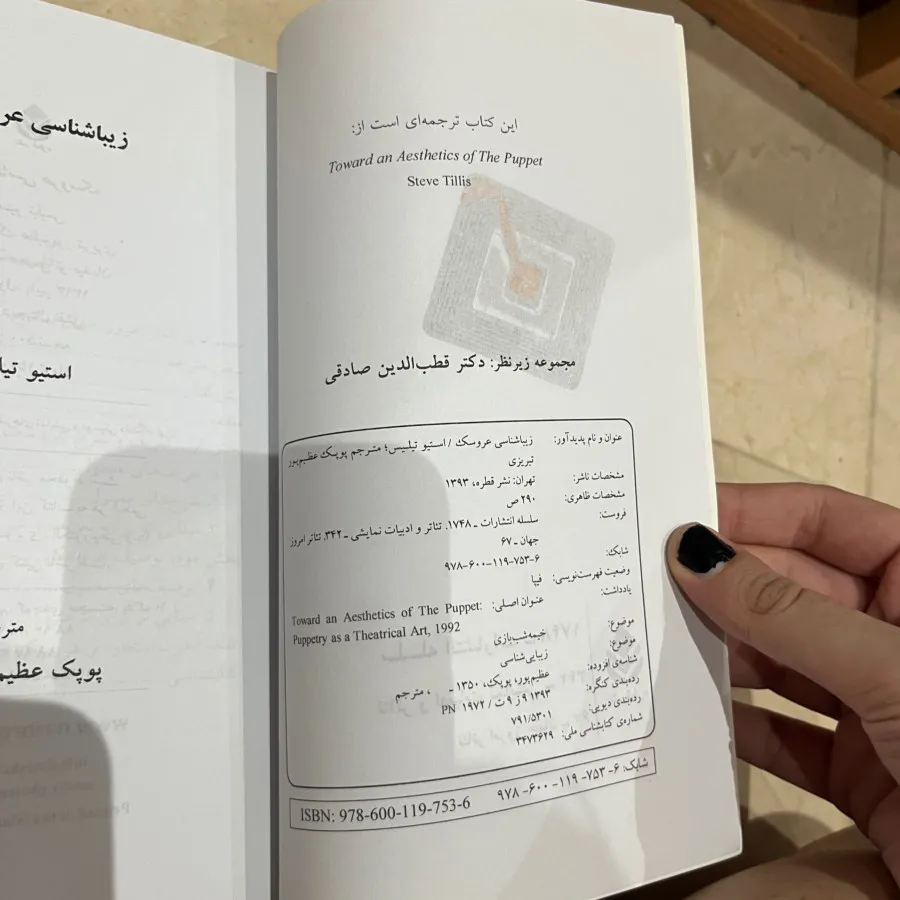 زیباشناسی
استیو
پوپک
این کتاب ترجمه‌ای است از:
Toward an Aesthetics of The Puppet
Steve Tillis
مجموعه زیرنظر: دکتر قطب‌الدین صادقی
عنوان و نام پدیدآور: زیباشناسی عروسک / استیو تیلیس؛ مترجم پوپک عظیم‌پور
تبریزی
مشخصات ناشر: تهران: نشر قطره، ۱۳۹۳
مشخصات ظاهری: ۲۹۰ ص
فروست: سلسله انتشارات ـ ۱۷۴۸. تئاتر و ادبیات نمایشی ـ ۳۴۲. تئاتر امروز
جهان ـ ۶۷
شابک: ۹۷۸-۶۰۰-۱۱۹-۷۵۳-۶
وضعیت فهرست‌نویسی: فیپا
یادداشت: عنوان اصلی: Toward an Aesthetics of The Puppet:
Puppetry as a Theatrical Art, 1992
موضوع: خیمه‌شب‌بازی
موضوع: زیبایی‌شناسی
شناسه‌ی افزوده: عظیم‌پور، پوپک، ۱۳۵۰ ـ ، مترجم
رده‌بندی کنگره: ۱۳۹۳ ۹ ز ۹ ت / PN ۱۹۷۲
رده‌بندی دیویی: ۷۹۱/۵۳۰۱
شماره‌ی کتابشناسی ملی: ۳۴۷۳۶۲۹
شابک: ۶-۷۵۳-۱۱۹-۶۰۰-۹۷۸ ISBN: 978-600-119-753-6